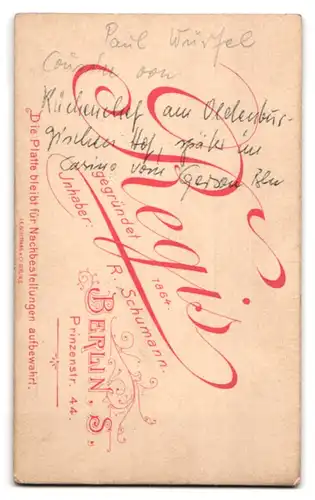 Paul Würfel
Cousin von
Küchenchef am Oldenbur-
gischen Hof, später im
Casino vom Gerson Bln
Regis
gegründet 1864.
Inhaber: R. Schumann.
BERLIN, S.
Prinzenstr. 44.
Die Platte bleibt für Nachbestellungen aufbewahrt.